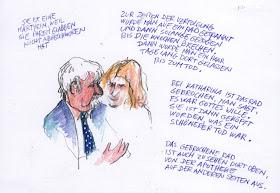 SIE IST EINE
MÄRTYRIN WEIL
SIE IHREM GLAUBEN
NICHT ABGESCHWOREN
HAT
ZUR ZEITEN DER VERFOLGUNG
WURDE MAN AUF EIN RAD GESPANNT
UND DANN SOLANGE GEZOGEN
BIS DIE KNOCHEN BRECHEN.
DANN WURDE MAN EIN PAAR
TAGE LANG DORT GELASSEN
BIS ZUM TOD.
BEI KATHARINA IST DAS RAD
GEBROCHEN, MAN SAGT,
ES WAR GOTTES WILLE.
SIE IST DANN GEKÖPFT
WORDEN, WAS EIN
SCHÖNERER TOD WAR.
DAS GEBROCHENE RAD
IST AUCH ZU SEHEN DORT OBEN,
VON DER APOTHEKE
AUF DER ANDEREN SEITEN AUS.